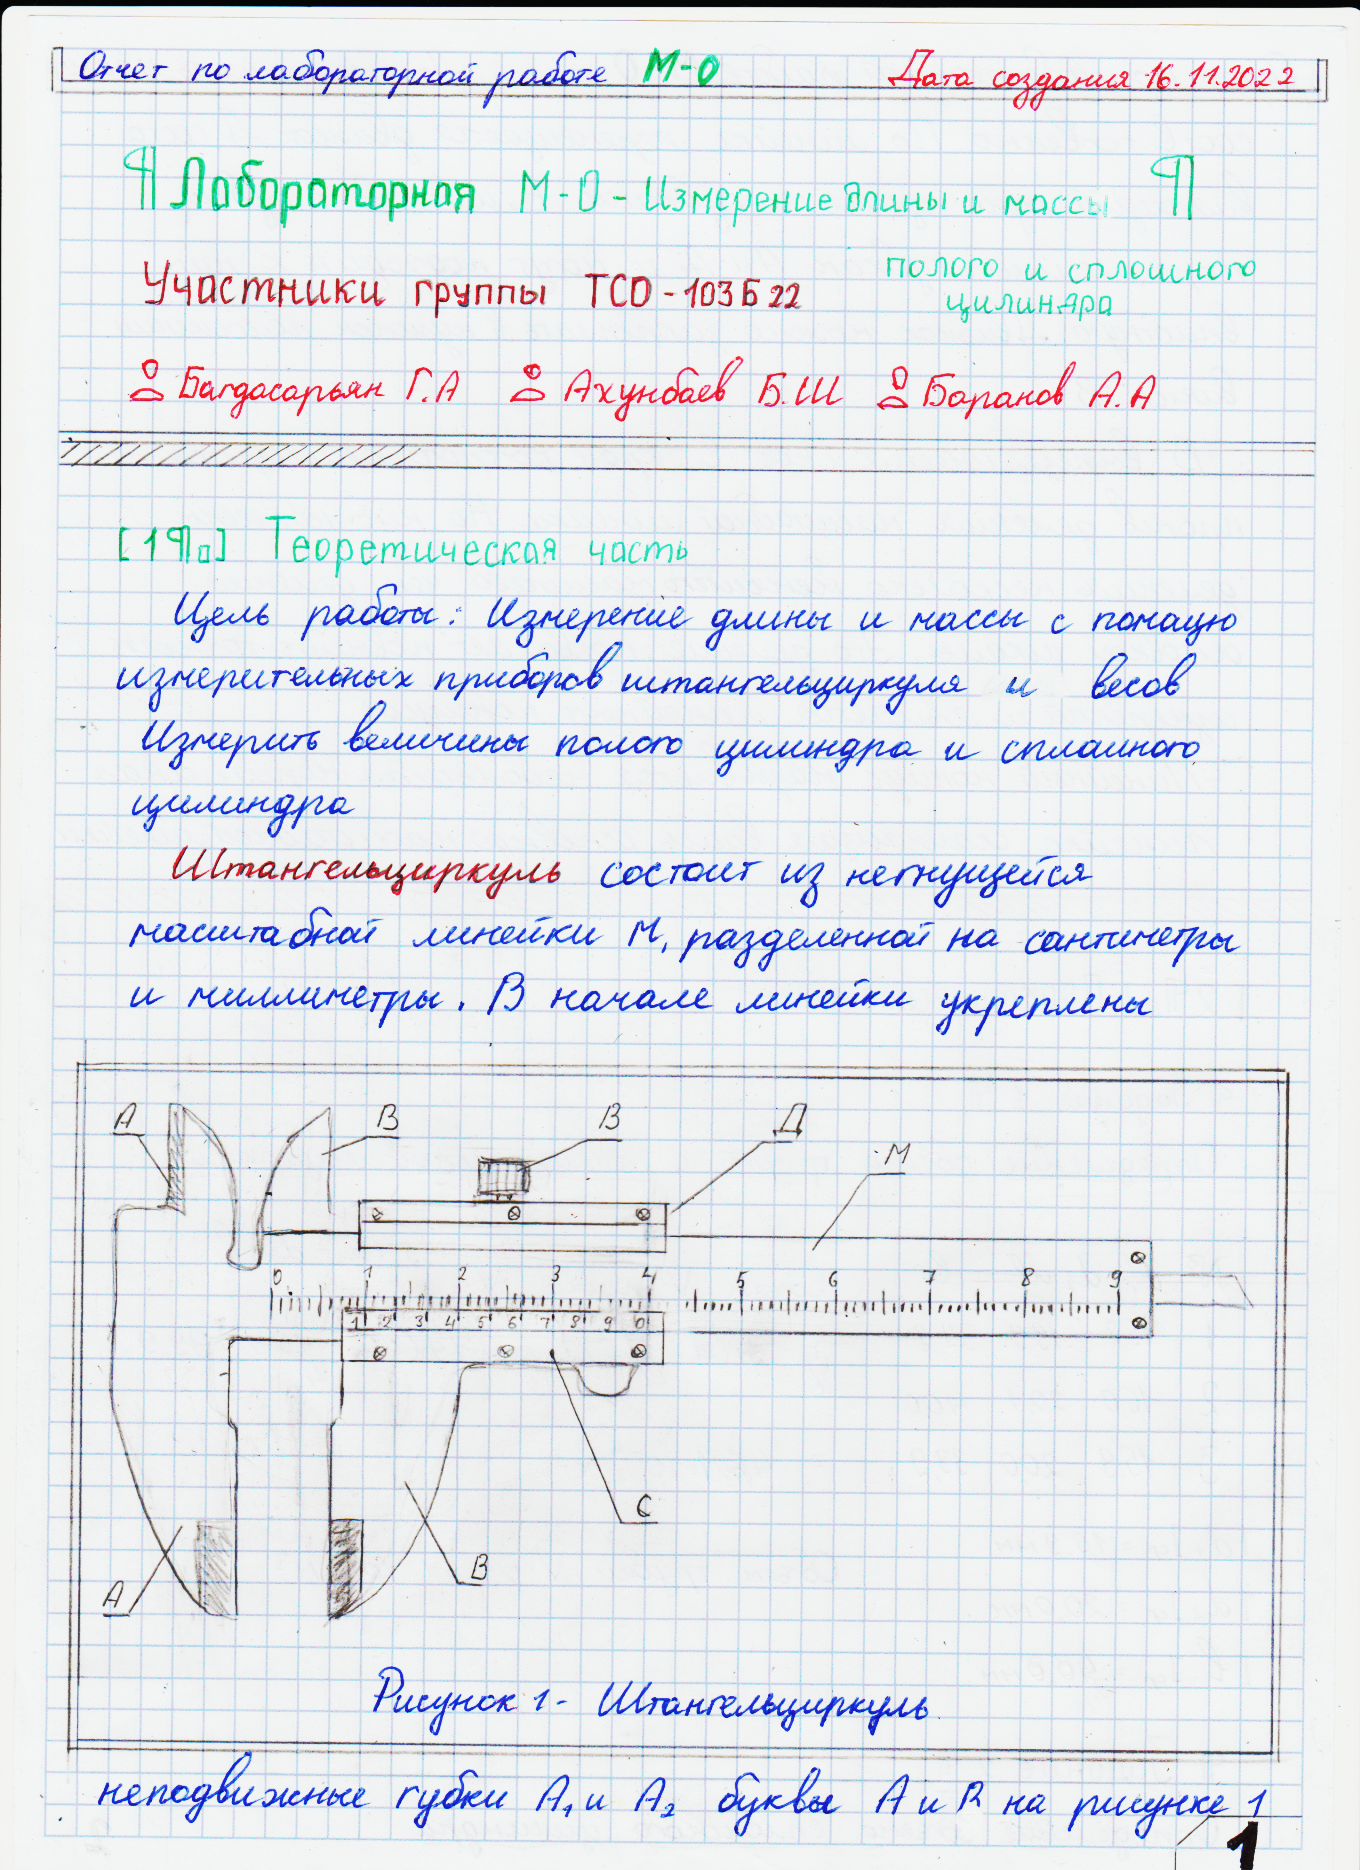 Отчет по лабораторной работе М-0 Дата создания 16.11.2022
¶ Лабораторная М-0 - Измерение длины и массы ¶
полого и сплошного
цилиндра
Участники группы ТСО-103Б22
Багдасарьян Г.А Ахунбаев Б.Ш Баранов А.А
[1¶] Теоретическая часть
Цель работы: Измерение длины и массы с помащю
измерительных приборов штангельциркуля и весов
Измерить величины полого цилиндра и сплошного
цилиндра
Штангельциркуль состоит из негнущейся
масштабной линейки М, разделенной на сантиметры
и миллиметры. В начале линейки укреплены
А В В Д М
0 1 2 3 4 5 6 7 8 9
1 2 3 4 5 6 7 8 9 0
С
В
А
Рисунок 1 - Штангельциркуль
неподвижные губки А₁ и А₂ буквы А и В на рисунке 1
1